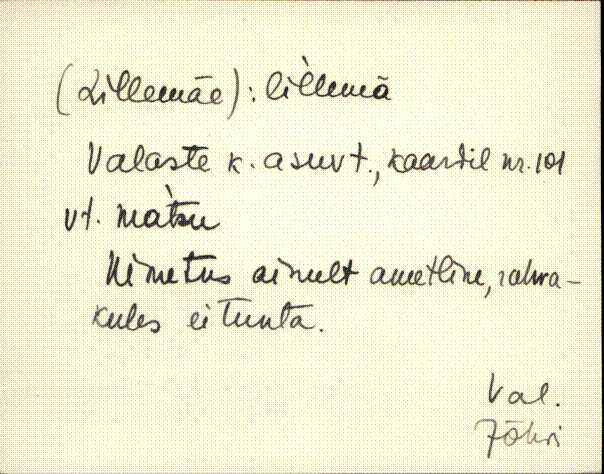 (Lillemäe): li̇̀llemä
Valaste k. asuvt., kaardil nr. 101
vt. màtsu
Nimetus ainult ametline, rahva-
kules ei tunta.
Val.
Jõhvi